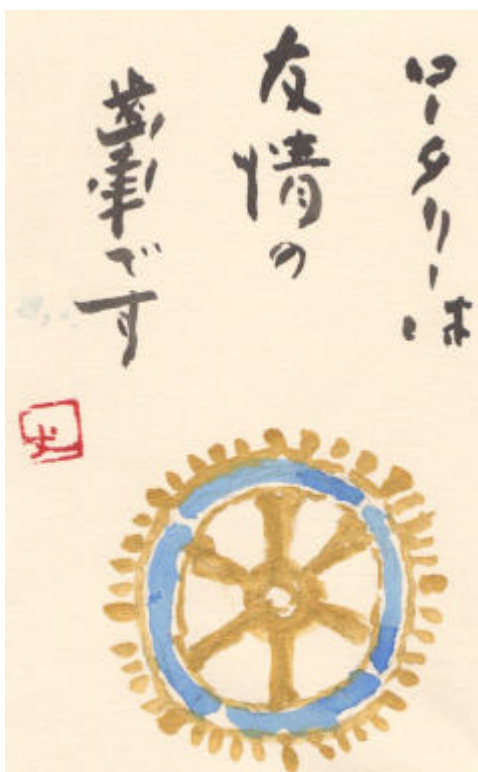 ロータリーは
友情の
歯車です